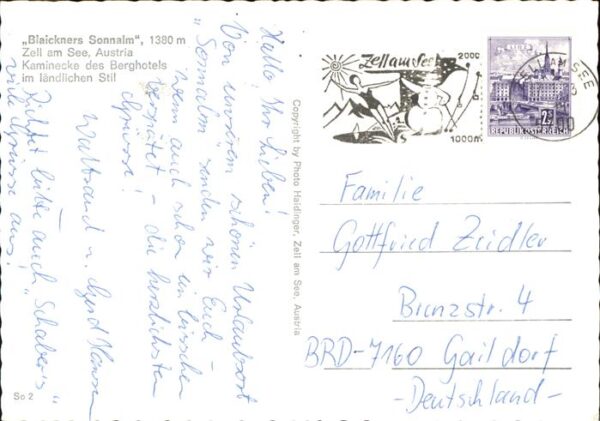 „Blaickners Sonnalm", 1380 m
Zell am See, Austria
Kaminecke des Berghotels
im ländlichen Stil
Hallo! Ihr Lieben!
Von unserem schönen Urlaubsort
"Sonnalm" senden wir Euch -
wenn auch schon ein bisschen
verspätet - die herzlichsten
Grüsse!
Waltraud u. Gerd Hansen
Richtet bitte auch "Schaberts"
viele Grüsse aus!
So 2
Copyright by Photo Haidinger, Zell am See, Austria
Zell am See
2000
1000m
ZELL AM SEE
REPUBLIK ÖSTERREICH
Familie
Gottfried Zeidler
Brunzstr. 4
BRD-7160 Gaildorf
-Deutschland-